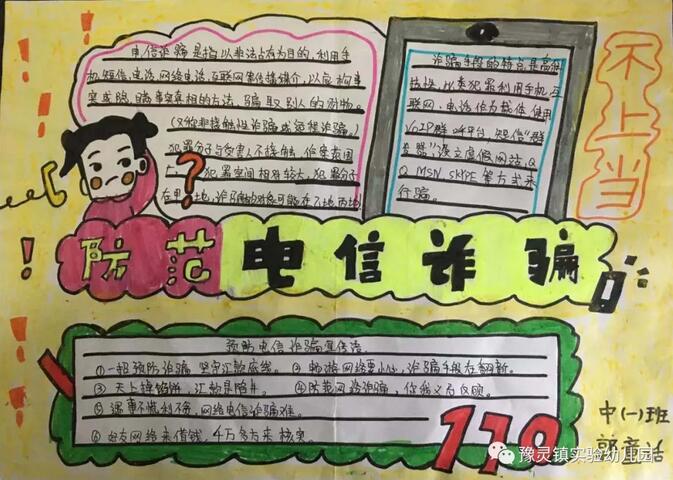 电信诈骗是指以非法占有为目的,利用手
机短信,电话,网络电话,互联网等传播媒介,以虚构事
实或隐瞒事实真相的方法,骗取别人的财物。
(又称非接触性诈骗或远程诈骗,)
犯罪分子与受害人不接触,作案范围
犯罪空间相对较大,犯罪分子
诈骗手段的特点是高科
技性,此类犯罪利用手机,互
联网,电话作为载体,使用
VOIP群呼平台,短信"群
设立虚假网站,Q
Q MSN SKYPE 等方式来
行骗。
不上当
?
防范电信诈骗
预防电信诈骗宣传语
①一招预防诈骗 坚守汇款底线。② 畅游网络要小心,诈骗手段在翻新。
③ 天上掉馅饼,汇款是陷井。④防范网络诈骗,你我义不
⑤ 遇事不慌利不贪,网络电信诈骗难。
⑥ 好友网络来借钱,4万多方来核实。
110
中(一)班
郭童话
豫灵镇实验幼儿园